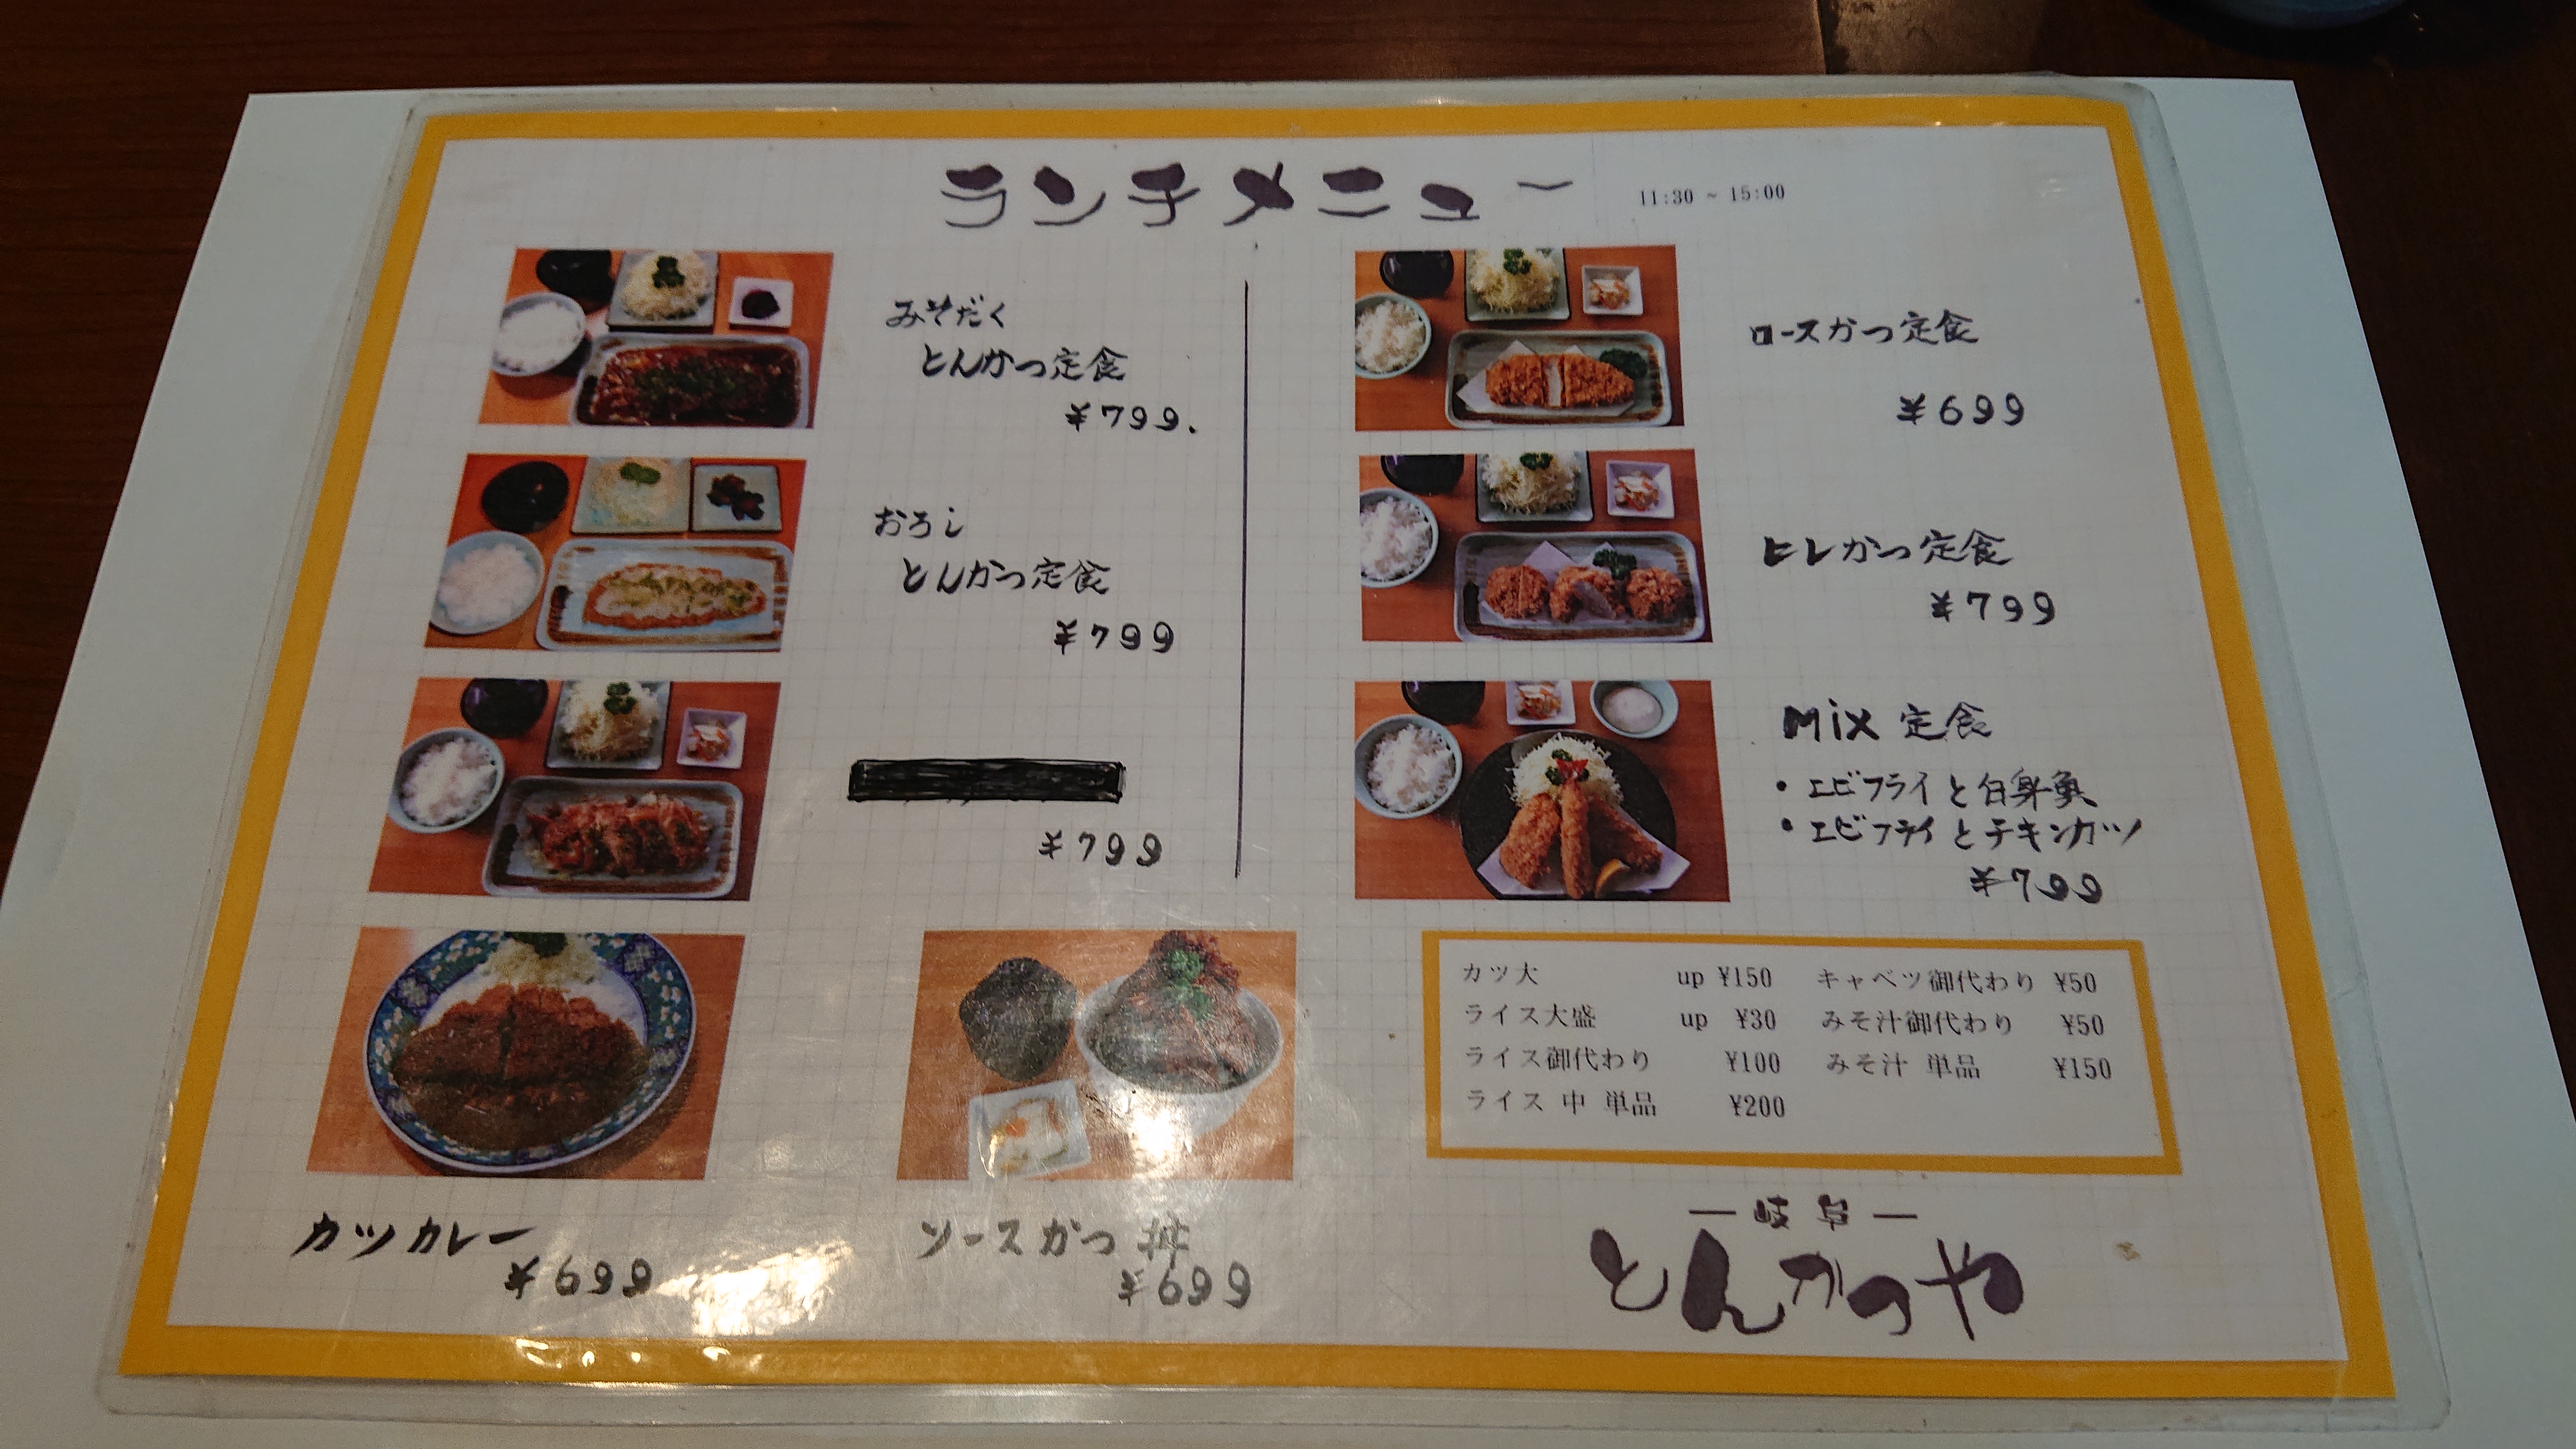 ランチメニュー 11:30 ~ 15:00
みそだく
とんかつ定食
¥799.
おろし
とんかつ定食
¥799
¥799
ロースかつ定食
¥699
ヒレかつ定食
¥799
Mix 定食
・エビフライと白身魚
・エビフライとチキンカツ
¥799
カツカレー
¥699
ソースかつ丼
¥699
カツ大 up ¥150 キャベツ御代わり ¥50
ライス大盛 up ¥30 みそ汁御代わり ¥50
ライス御代わり ¥100 みそ汁 単品 ¥150
ライス 中 単品 ¥200
―岐阜―
とんかつや